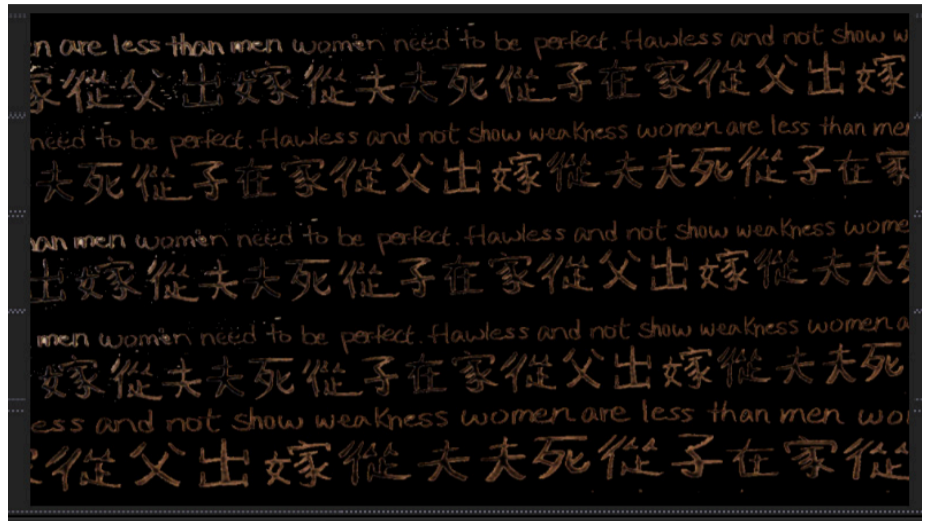 are less than men women need to be perfect. flawless and not show
家從父出嫁從夫夫死從子在家從父出嫁
need to be perfect. flawless and not show weakness women are less than men
夫死從子在家從父出嫁從夫夫死從子在家
men women need to be perfect. flawless and not show weakness
出嫁從夫夫死從子在家從父出嫁從夫夫
men women need to be perfect. flawless and not show weakness women
嫁從夫夫死從子在家從父出嫁從夫夫死
and not show weakness women are less than men
從父出嫁從夫夫死從子在家從